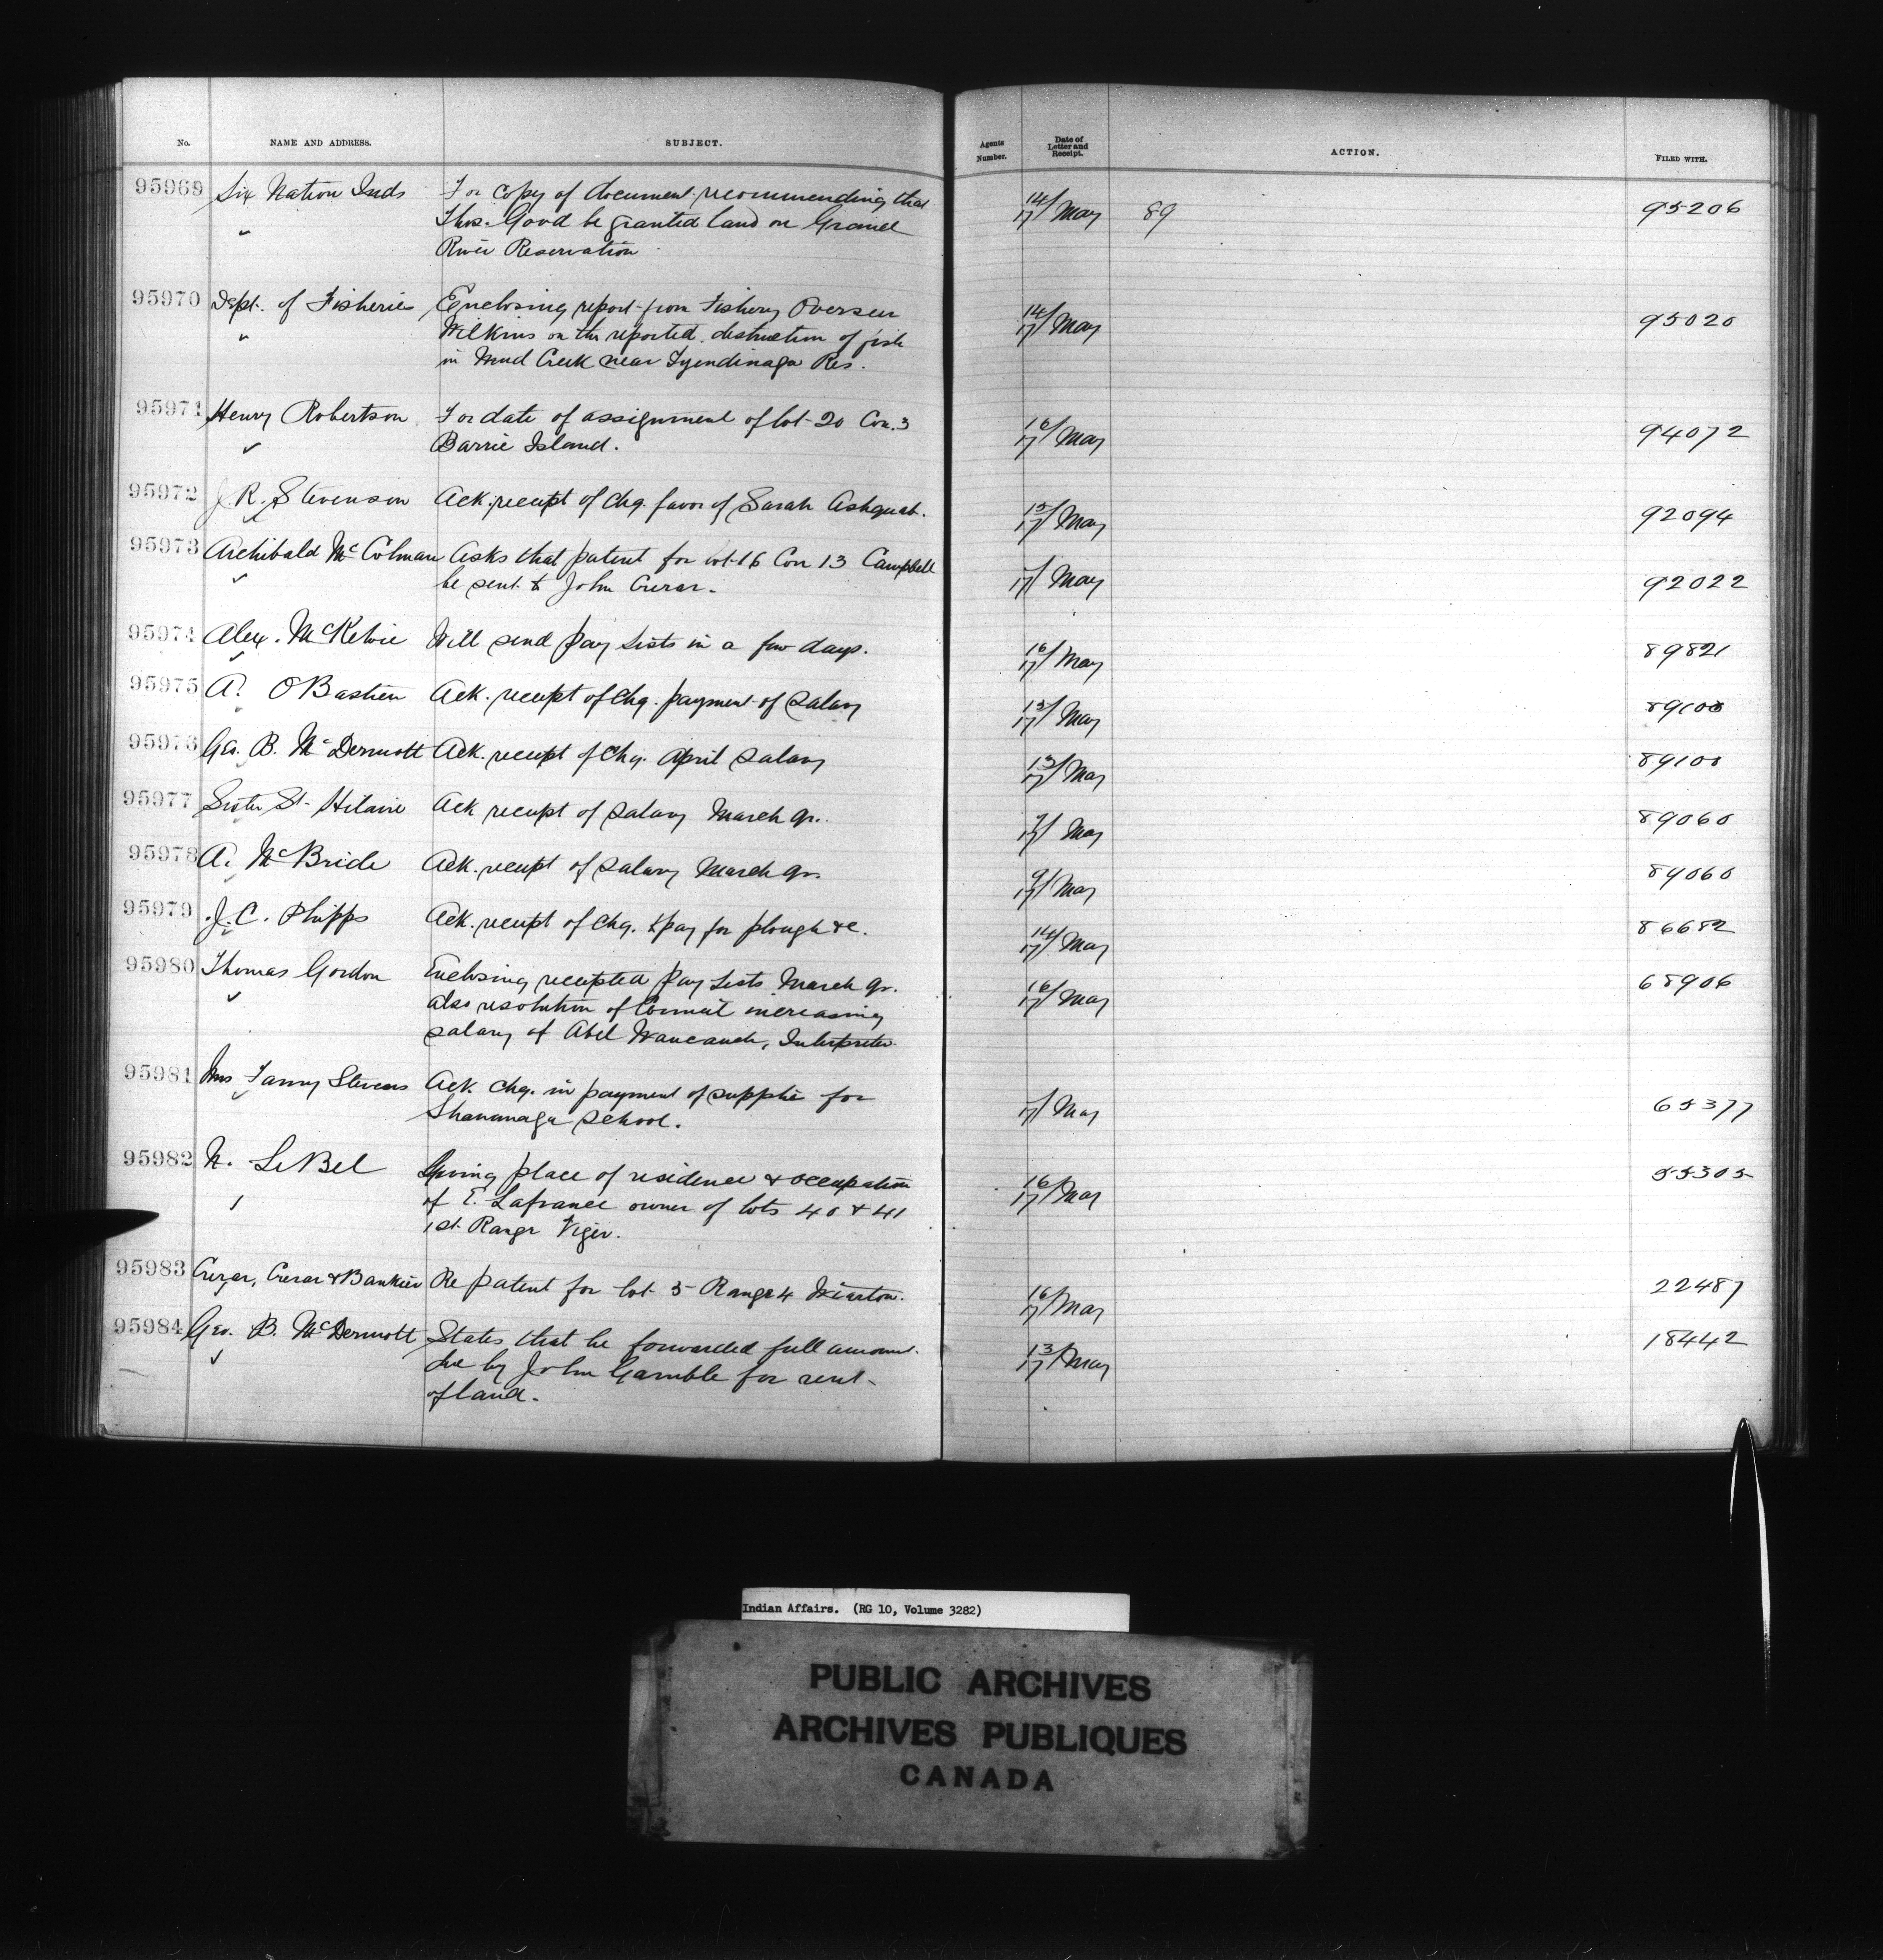 No. NAME AND ADDRESS. SUBJECT. Agents Number. Date of Letter and Receipt. ACTION. FILED WITH.
95969 Six Nation Inds For copy of document recommending that 14/17 May 89 95206
Thos. Good be granted land on Grand
River Reservation
95970 Dept. of Fisheries Enclosing report from Fishery Overseer 14/17 May 95020
Wilkins on the reported destruction of fish
in Mud Creek near Tyendinaga Res.
95971 Henry Robertson For date of assignment of lot 20 Con. 3 16/17 May 94072
Barrie Island.
95972 J. R. Stevenson Ack. receipt of chq. favor of Sarah Ashquab. 15/17 May 92094
95973 Archibald McColman Asks that patent for lot 16 Con 13 Campbell 17 May 92022
be sent to John Crerar.
95974 Alex. McKelvie Will send Pay Lists in a few days. 16/17 May 89821
95975 A. O Bastien Ack. receipt of chq. payment of Salary 13/17 May 89100
95976 Geo. B. McDermott Ack. receipt of chq. April Salary 13/17 May 89100
95977 Sister St. Hilaire Ack receipt of Salary March qr. 7/17 May 89060
95978 A. McBride Ack. receipt of Salary March qr. 9/17 May 89060
95979 J. C. Phipps Ack. receipt of chq. to pay for plough &c. 14/17 May 86682
95980 Thomas Gordon Enclosing receipted Pay Lists March qr. 16/17 May 68906
also resolution of Council increasing
salary of Abel Waucaush, Interpreter
95981 Mrs Fanny Stevens Ack. chq. in payment of supplies for 17 May 65377
Shawanaga School.
95982 N. LeBel Giving place of residence & occupation 16/17 May 55305
of E. Lafrance owner of lots 40 & 41
1st. Range Viger.
95983 Crerar, Crerar & Bankier Re patent for lot 5 Range 4 Wiarton. 16/17 May 22487
95984 Geo. B. McDermott States that he forwarded full amount 13/17 May 18442
due by John Gamble for rent
of land.
Indian Affairs. (RG 10, Volume 3282)
PUBLIC ARCHIVES
ARCHIVES PUBLIQUES
CANADA